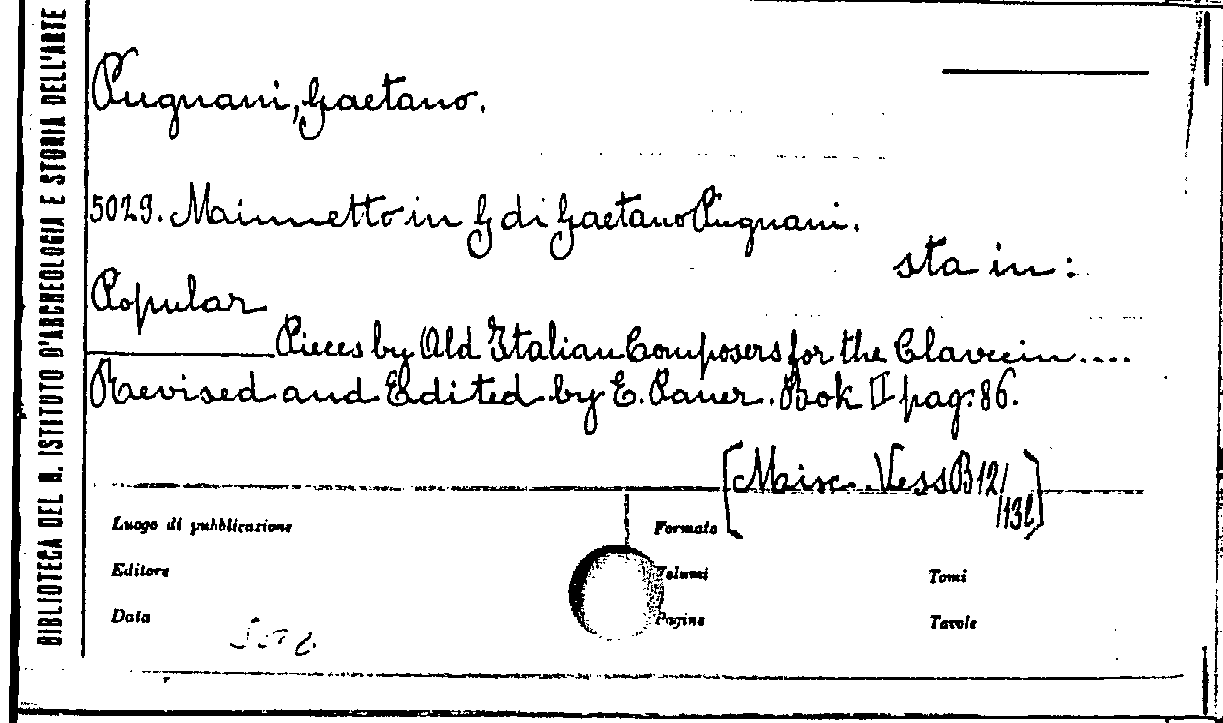 BIBLIOTECA DEL R. ISTITUTO D'ARCHEOLOGIA E STORIA DELL'ARTE
Pugnani, Gaetano.
5029. Mainnetto in G di Gaetano Pugnani.
sta in:
Popular
Pieces by Old Italian Composers for the Clavecin....
Revised and Edited by E. Pauer. Book II pag: 86.
[Misc. Vess B 12/
/132]
Luogo di pubblicazione
Formato
Editore
Volumi
Tomi
Data
Pagine
Tavole